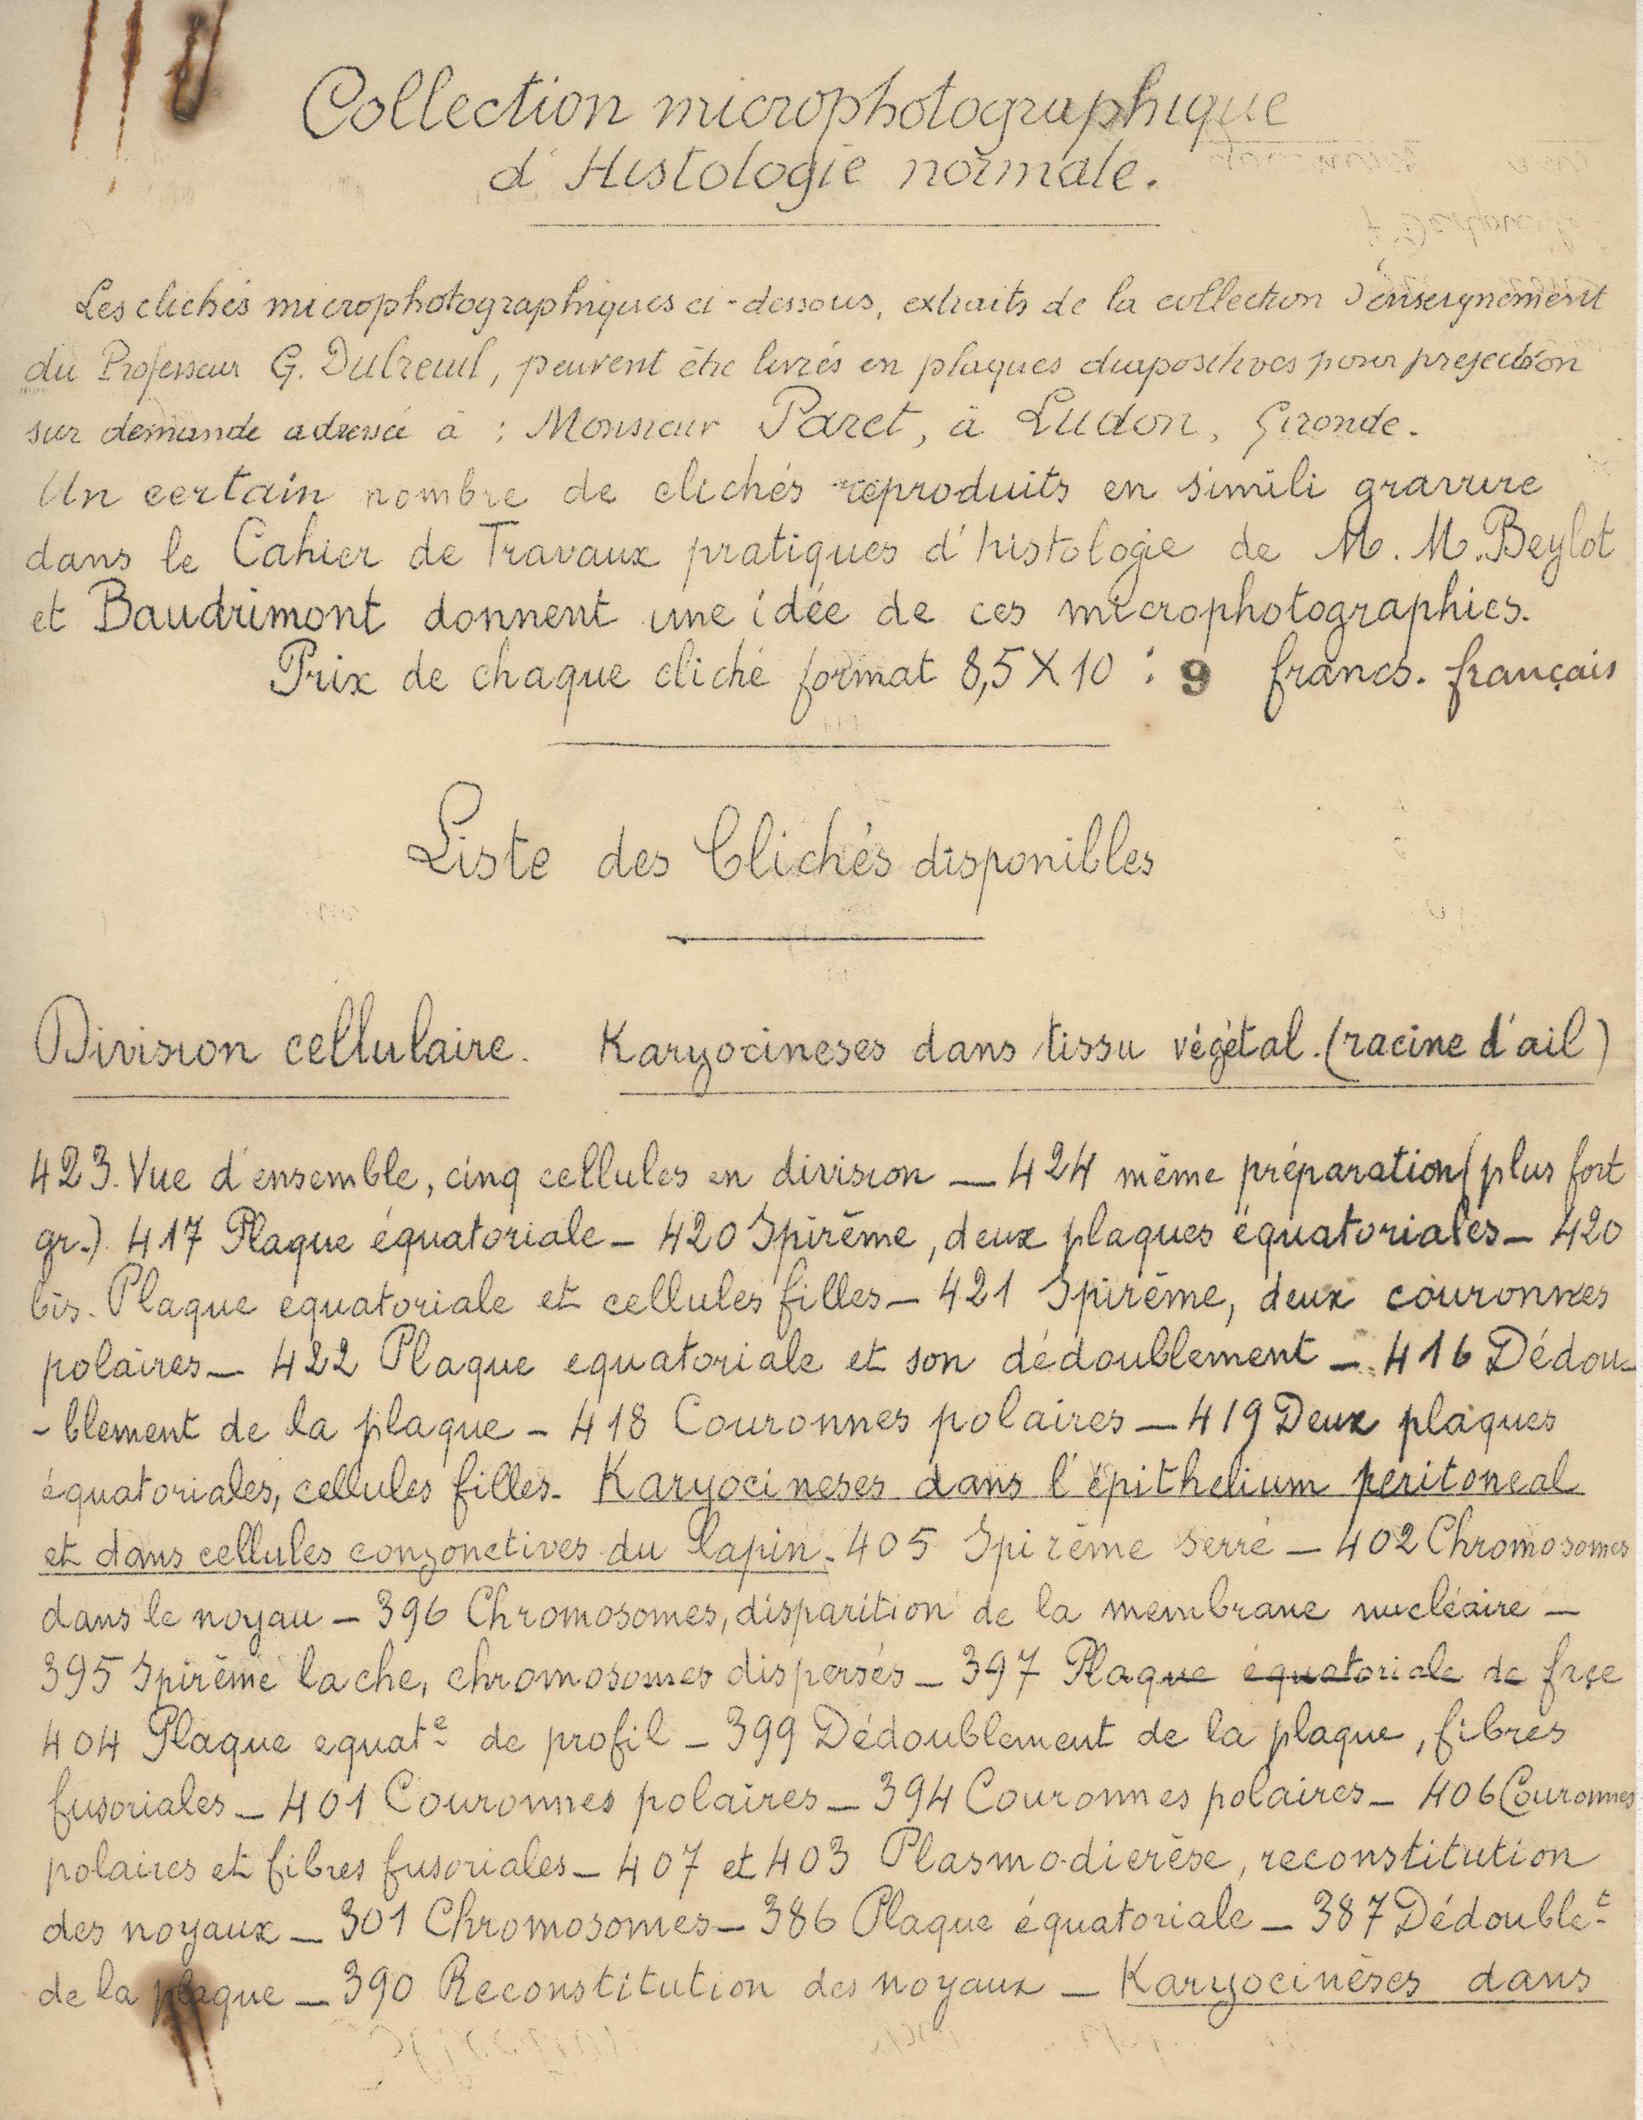 Collection microphotographique
d'Histologie normale.
Les clichés microphotographiques ci-dessous, extraits de la collection d'enseignement
du Professeur G. Dubreuil, peuvent être livrés en plaques diapositives pour projection
sur demande adressée à : Monsieur Paret, à Ludon, Gironde.
Un certain nombre de clichés reproduits en simili gravure
dans le Cahier de Travaux pratiques d'histologie de M. M. Beylot
et Baudrimont donnent une idée de ces microphotographies.
Prix de chaque cliché format 8,5 X 10 : 9 francs. français
Liste des Clichés disponibles
Division cellulaire. Karyocineses dans tissu végétal. (racine d'ail)
423. Vue d'ensemble, cinq cellules en division — 424 même préparation (plus fort
gr.). 417 Plaque équatoriale — 420 Spirème, deux plaques équatoriales — 420
bis. Plaque equatoriale et cellules filles — 421 Spirème, deux couronnes
polaires — 422 Plaque equatoriale et son dédoublement — 416 Dédou-
-blement de la plaque — 418 Couronnes polaires — 419 Deux plaques
équatoriales, cellules filles. Karyocineses dans l'épithelium peritoneal
et dans cellules conjonctives du lapin. 405 Spirème serré — 402 Chromosomes
dans le noyau — 396 Chromosomes, disparition de la membrane nucléaire —
395 Spirème lache, chromosomes dispersés — 397 Plaque équatoriale de face
404 Plaque equat.e de profil — 399 Dédoublement de la plaque, fibres
fusoriales — 401 Couronnes polaires — 394 Couronnes polaires — 406 Couronnes
polaires et fibres fusoriales — 407 et 403 Plasmodierèse, reconstitution
des noyaux — 301 Chromosomes — 386 Plaque équatoriale — 387 Dédouble.t
de la plaque — 390 Reconstitution des noyaux — Karyocinèses dans